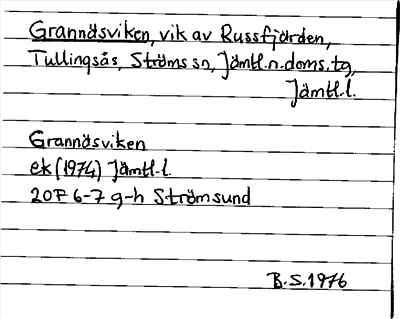 Grannäsviken, vik av Russfjärden,
Tullingsås, Ströms sn, Jämtl.n.doms.tg,
Jämtl.l.
Grannäsviken
ek (1974) Jämtl.l.
20F 6-7 g-h Strömsund
B.S. 1976